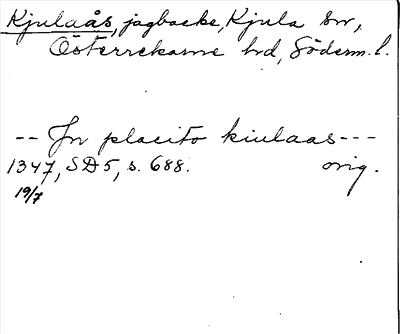 Kjulaås, jagbacke, Kjula sn,
Österrekarne hrd, Söderm. l.
-- In placito kiulaas ---
1347, SD 5, s. 688. orig.
19/7